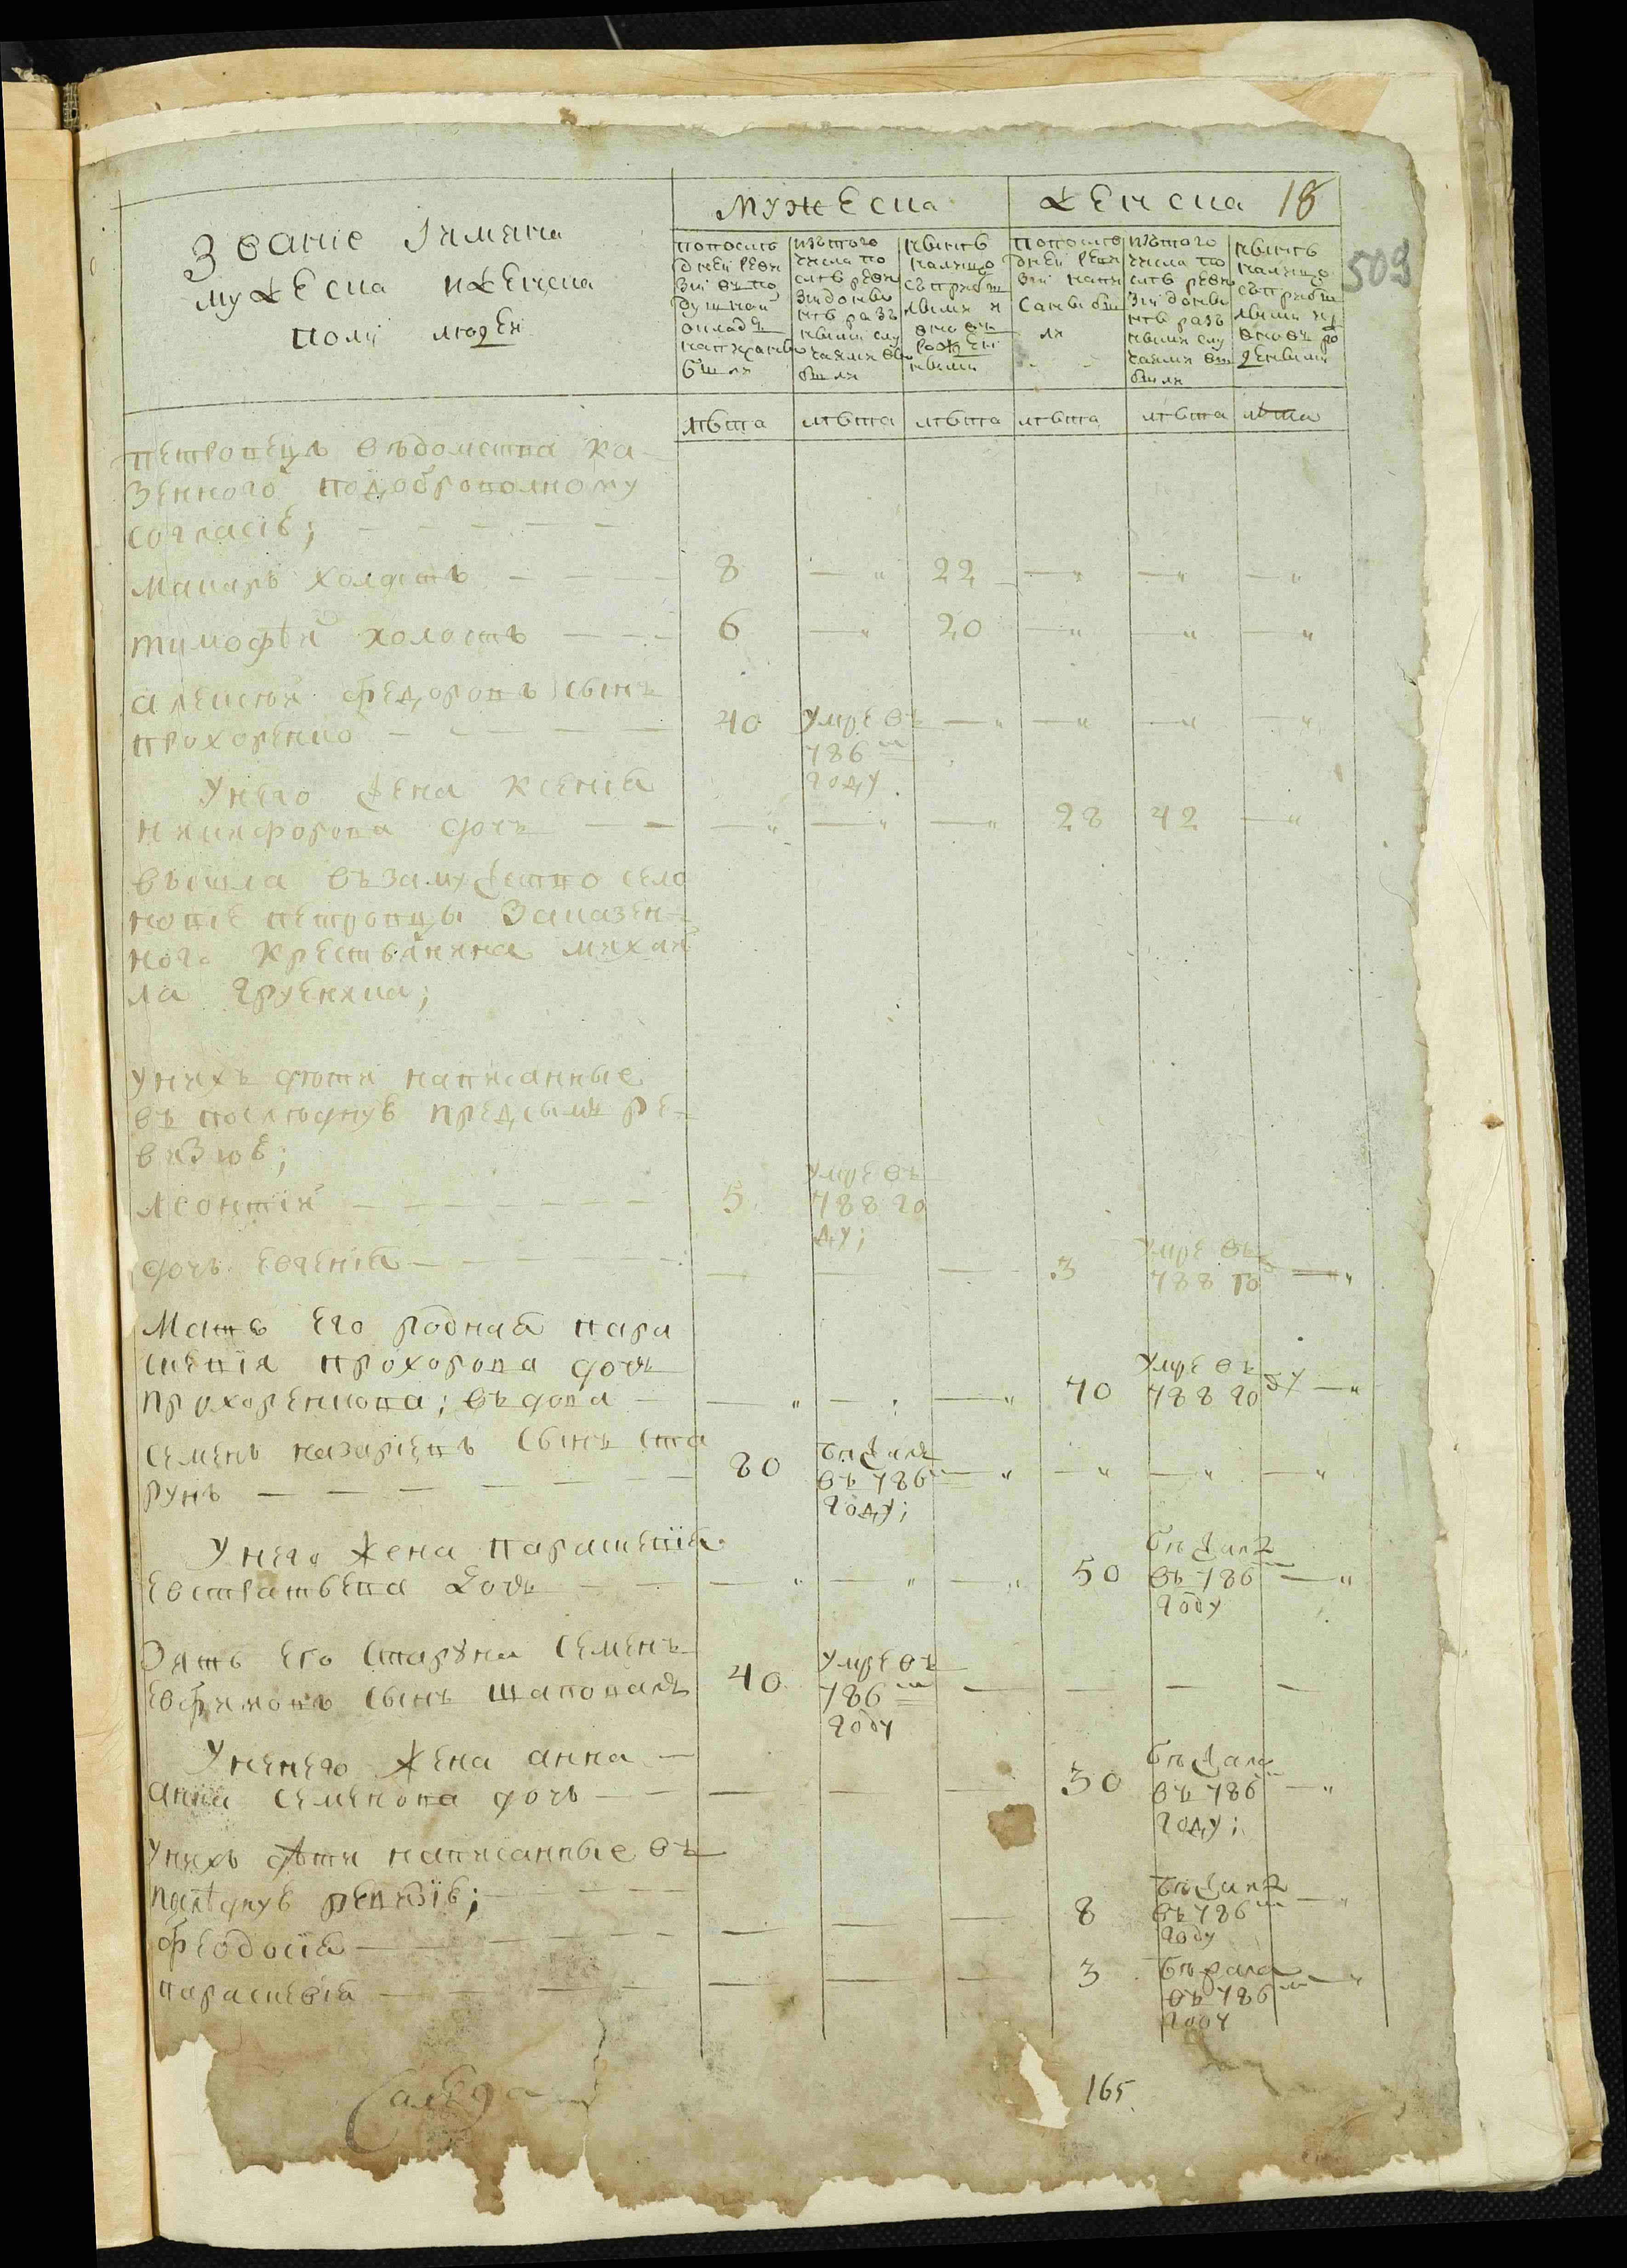 Мужеска
Женска 18
509
Званіе Iимяна
мужеска иженска
полу людей
попослѣ
дней реви
зіи въ по
душной
окладъ
написанно
было
изътого
числа по
слѣ реви
зіи до нынѣ
разными
случаями
выбыло
нынѣ
налицо
съприбы
лыми и
вновь
рожден
ными
попослѣ
дней реви
зіи напи
санныбы
ли
изътого
числа по
слѣ реви
зіи до нынѣ
разными
случаями
выбыло
нынѣ
налицо
съприбы
лыми и
вновь ро
жденными
лѣта лѣта лѣта лѣта лѣта лѣта
петровецъ вѣдомства ка
зенного подоброволному
согласіе;
Макаръ холостъ 8 22
тимофѣй холостъ 6 20
алексѣй федоровъ сынъ
прохоренко 40 умре въ
786м
году
Унего жена ксенія
никифорова дочь 28 42
вышла възамужство село
новіе петровцы заказен
ного крестьянина михаи
ла
унихъ дѣти написанные
въ последнуе предсимъ ре
визіе;
леонтій 5 умре въ
788 го
ду;
дочь евгенія 3 умре въ
788 го
Мать его родная пара
скевія прохорова дочь
прохоренкова; вдова 70 умре въ
788 году
семенъ назаріевъ сынъ ста
рунъ 80 бѣжалъ
въ 786
году;
Унего жена параскевія
евстратьева дочь 50 бѣжала
въ 786
году
Зять его старуна семенъ
ефимовъ сынъ шаповалъ 40 умре въ
786м
году
Унего жена анна
анна семенова дочь 30 бѣжала
въ 786
году;
унихъ дѣти написанные въ
последнуе ревизіе;
феодосія 8 бѣжала
въ 786м
году
параскевія 3 бѣжала
въ 786м
году
165